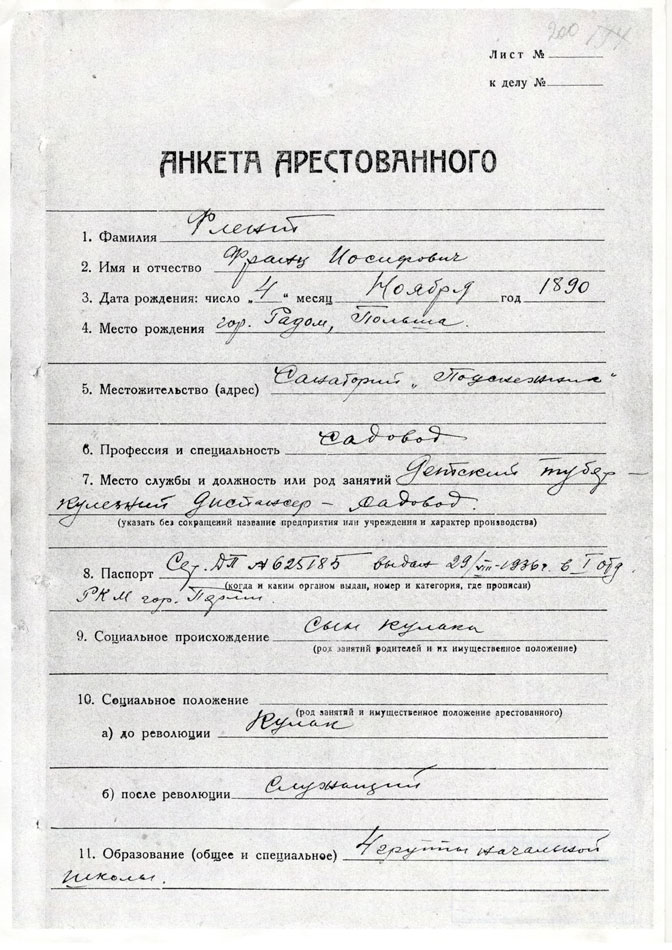 200 174
Лист №
к делу №
АНКЕТА АРЕСТОВАННОГО
1. Фамилия Флент
2. Имя и отчество Франц Иосифович
3. Дата рождения: число „4“ месяц Ноября год 1890
4. Место рождения гор. Радом, Польша.
5. Местожительство (адрес) Санаторий „Подснежник“
6. Профессия и специальность садовод
7. Место службы и должность или род занятий Детский тубер-
кулезный диспансер – садовод.
(указать без сокращений название предприятия или учреждения и характер производства)
8. Паспорт Сер. ДП № 625185 выдан 29/VIII-1936г. в I отд.
(когда и каким органом выдан, номер и категория, где прописан)
РКМ гор.
9. Социальное происхождение Сын кулака
(род занятий родителей и их имущественное положение)
10. Социальное положение
(род занятий и имущественное положение арестованного)
а) до революции Кулак
б) после революции Служащий
11. Образование (общее и специальное) 4 группы начальной
школы.